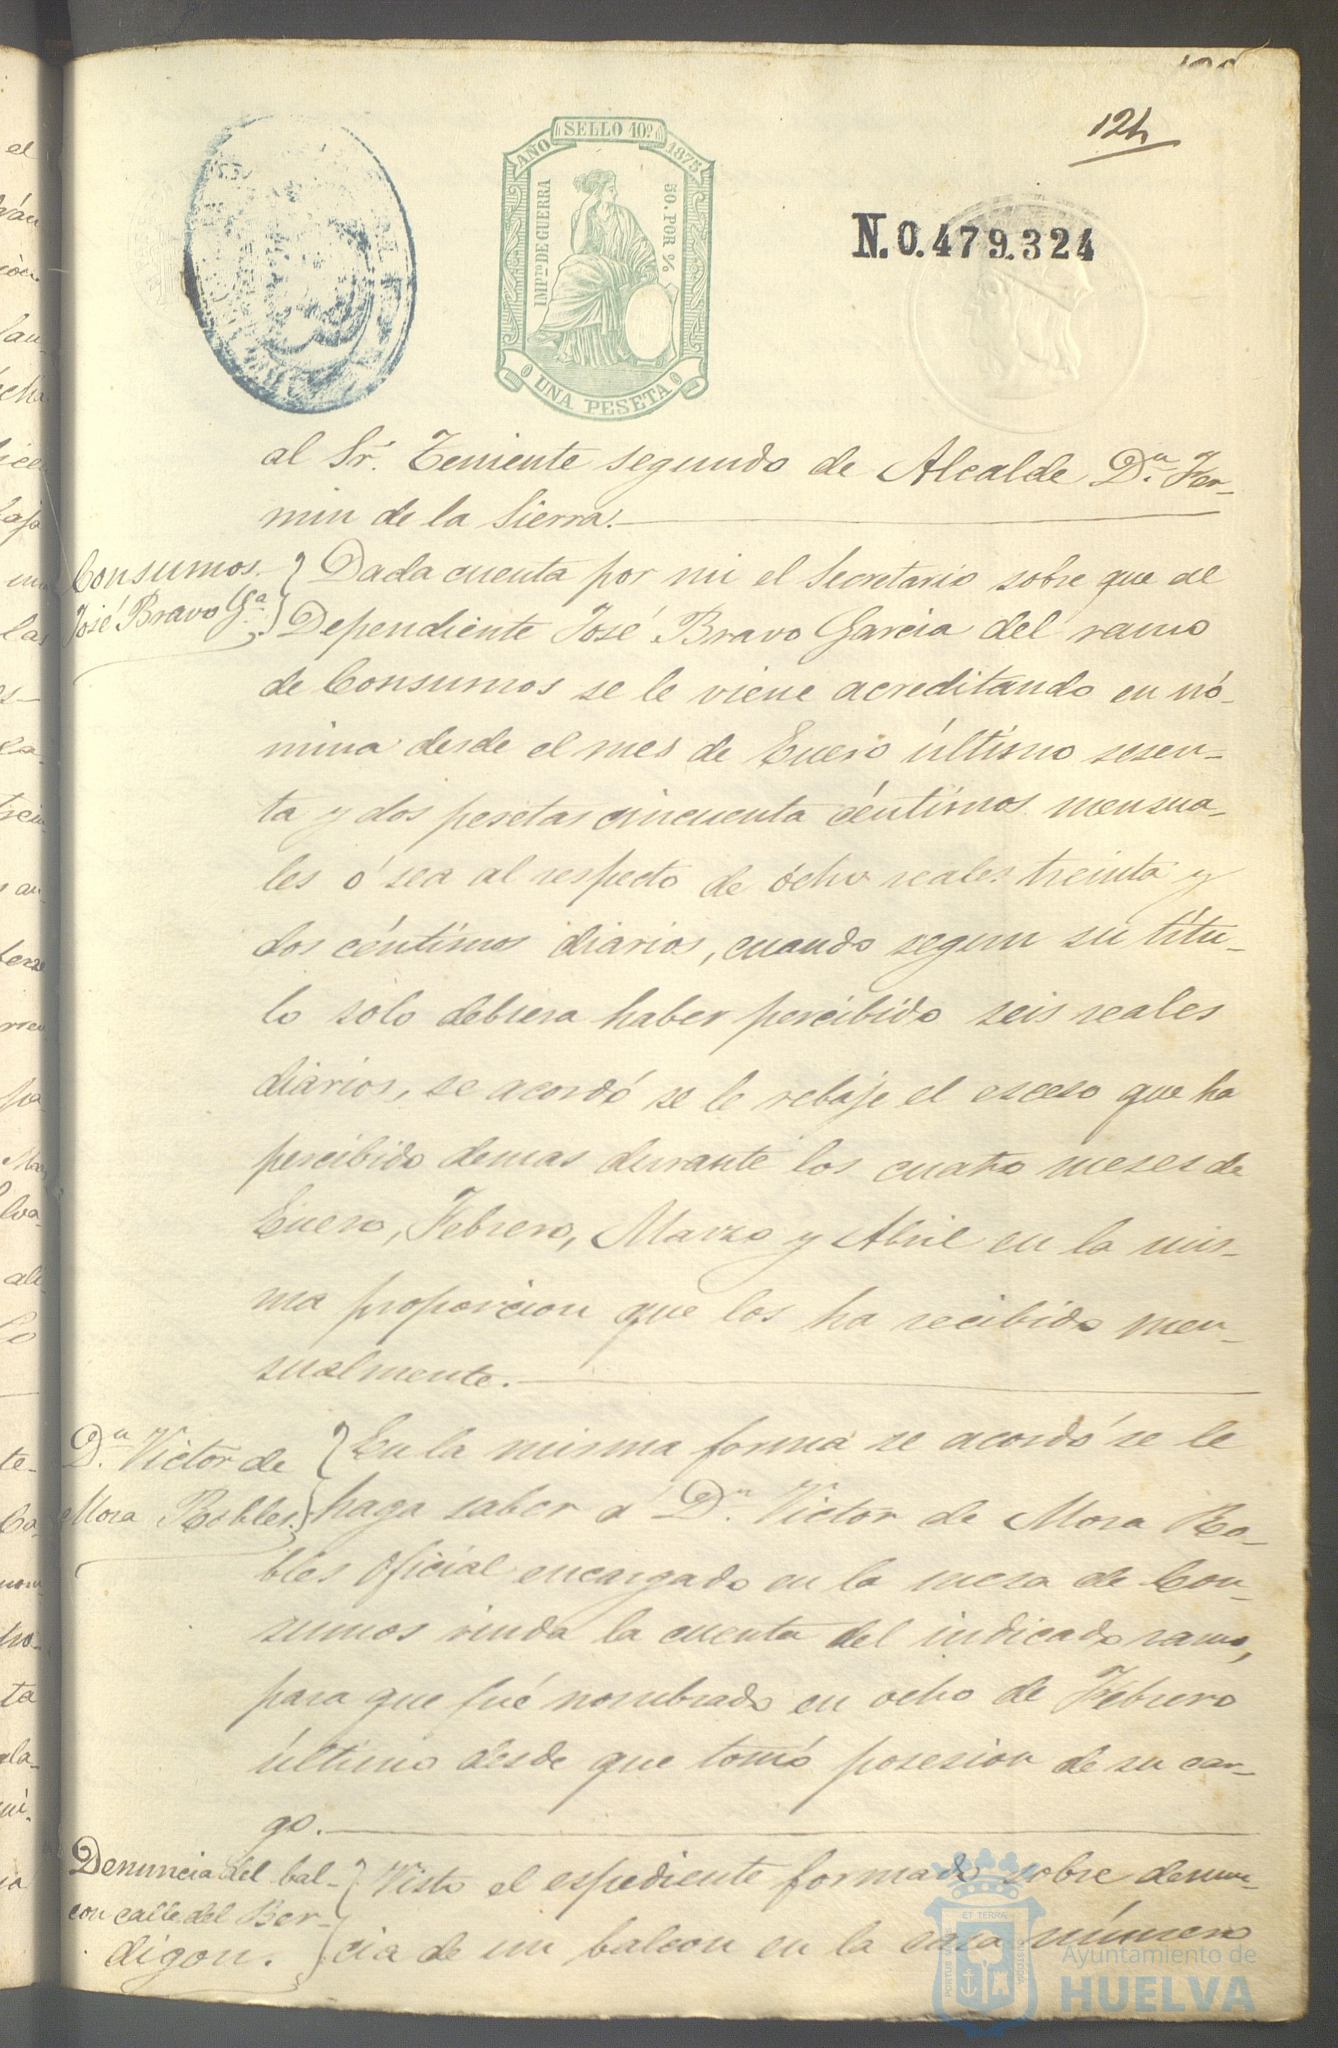 124
SELLO 10º
AÑO 1875
IMPTO DE GUERRA
50. POR %
UNA PESETA
N.0.479.324
al Sr. Teniente segundo de Alcalde Dn. Fer-
min de la Sierra.
Consumos.
José Bravo Ga.
Dada cuenta por mi el Secretario sobre que al
Dependiente José Bravo Garcia del ramo
de Consumos se le viene acreditando en nó-
mina desde el mes de Enero último sesen-
ta y dos pesetas cincuenta céntimos mensua-
les ó sea al respecto de ocho reales treinta y
dos céntimos diarios, cuando segun su títu-
lo solo debiera haber percibido seis reales
diarios, se acordó se le rebaje el esceso que ha
percibido demas durante los cuatro meses de
Enero, Febrero, Marzo y Abril en la mis-
ma proporcion que los ha recibido men-
sualmente.
Dn. Victor de
Mora Robles.
En la misma forma se acordó se le
haga saber á Dn. Victor de Mora Ro-
bles Oficial encargado en la mesa de Con-
sumos rinda la cuenta del indicado ramo,
para que fué nombrado en ocho de Febrero
último desde que tomó posesion de su car-
go.
Denuncia del bal-
con calle del Ber-
digon.
Visto el espediente formado sobre denun-
cia de un balcon en la casa número
Ayuntamiento de
HUELVA